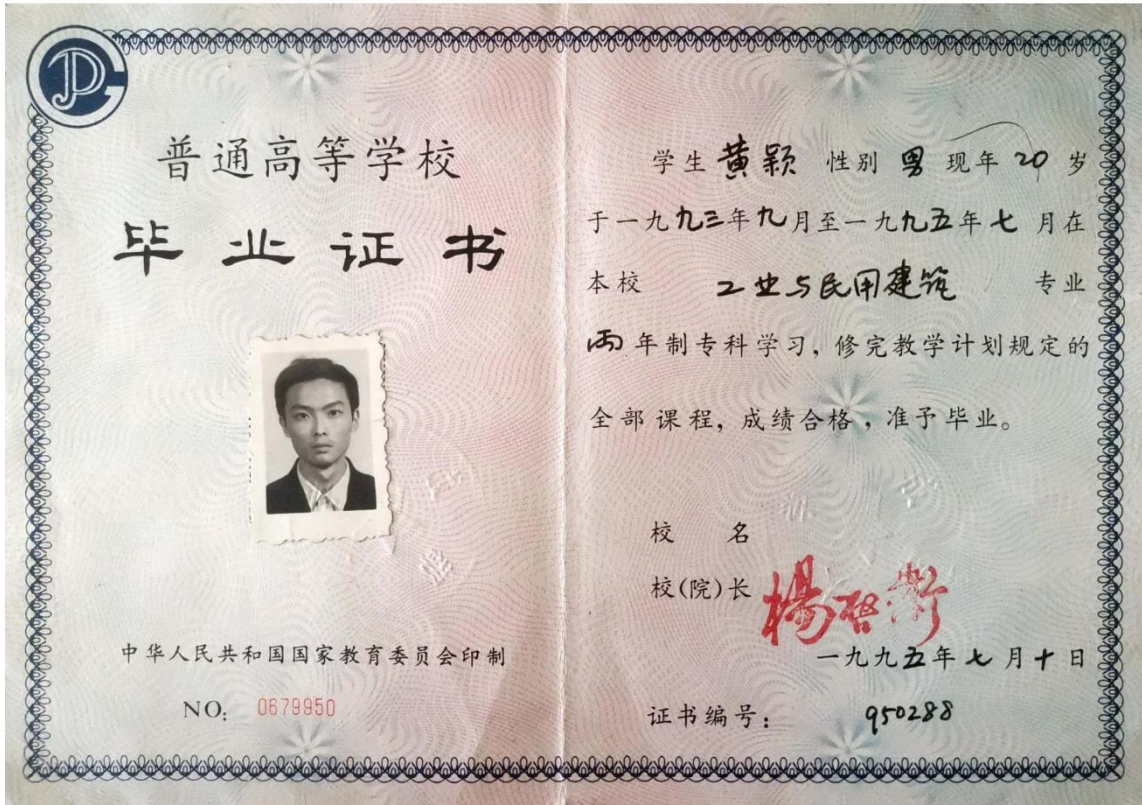 普通高等学校
毕业证书
中华人民共和国国家教育委员会印制
NO: 0679950
学生 黄颖 性别 男 现年 20 岁
于一九九三年九月至一九九五年七月在
本校 工业与民用建筑 专业
两年制专科学习,修完教学计划规定的
全部课程,成绩合格,准予毕业。
校 名
校(院)长
一九九五年七月十日
证书编号: 950288